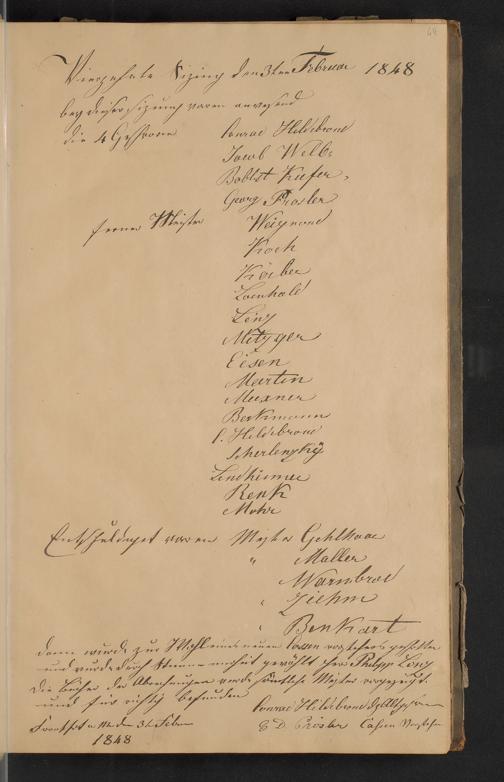 64
Vierzehnte Sizung den 3ten Februar 1848
bey dieser Sizung waren anwesend
die 4 Geschworne Conrad Hildebrand
Jacob Welb:
Babtist Kiefer,
Georg Prösler
ferner Meister Weiynand
Koch
Körber
Loenhold
Lenz
Metzger
Eisen
Martin
Meixner
Berkmann
C. Hildebrand
Scherlenzky
Lindheimer
Renk
Mohr
Entschuldiget waren Meister Gehlhaar
" Maller
Warmbrod
" Ziehm
" Benkart
dann wurde zur Wahl eines neuen Cassen vorstehers geschritten
und wurde durch Stimmenmehrheit gewählt Herr Philipp Lenz
die Bücher der wurde sämtliche Meister vorgezeigt
und für richtig befunden Conrad Hildebrand
Frankfurt a M den 3t Febru G D Prösler Cassen Vorsteher
1848